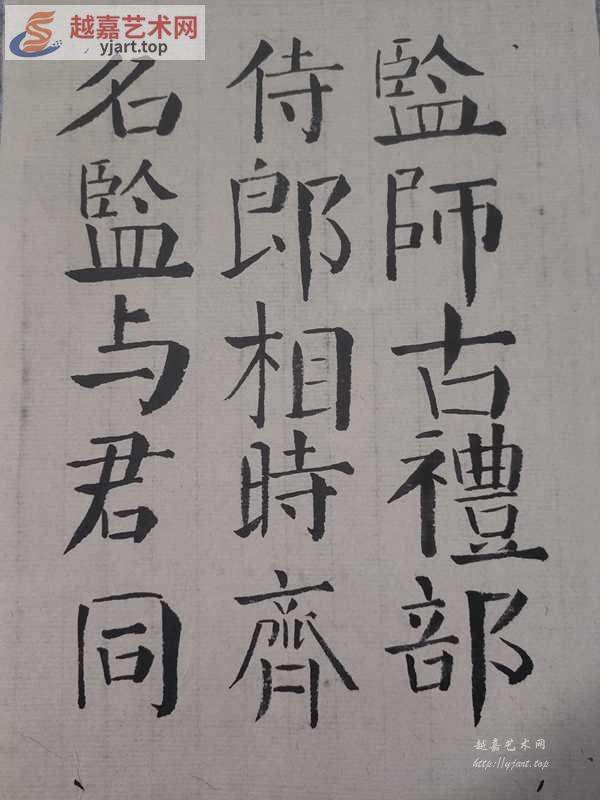 越嘉艺术网
yjart.top
監師古禮部
侍郎相時齊
名監与君同
越嘉艺术网
http://yjart.top